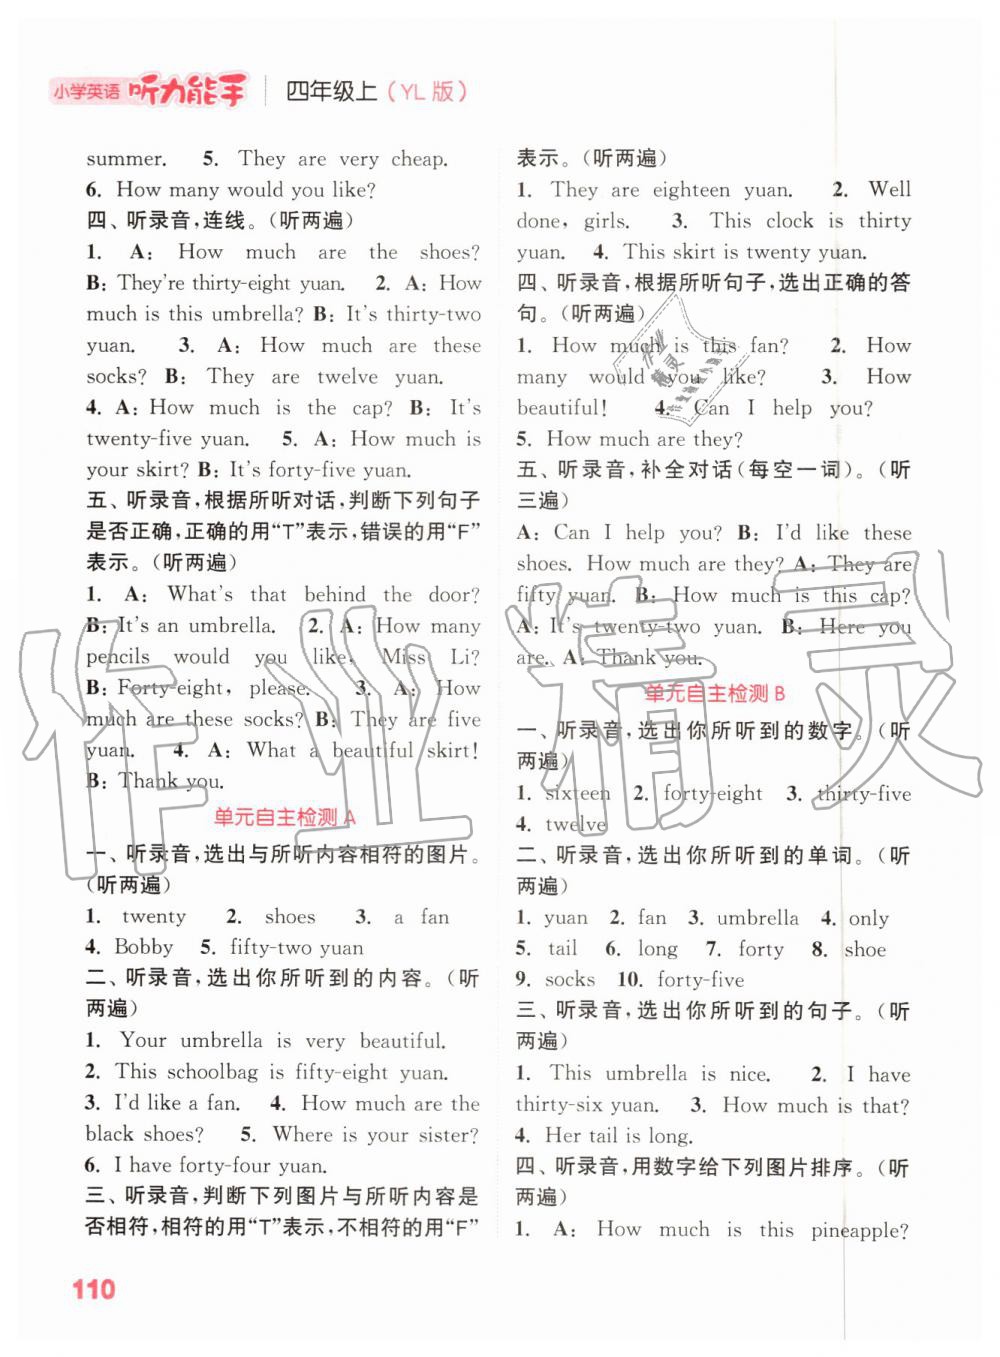 小学英语 听力能手 四年级上(YL版)
summer. 5. They are very cheap.
6. How many would you like?
四、听录音,连线。(听两遍)
1. A: How much are the shoes?
B: They're thirty-eight yuan. 2. A: How
much is this umbrella? B: It's thirty-two
yuan. 3. A: How much are these
socks? B: They are twelve yuan.
4. A: How much is the cap? B: It's
twenty-five yuan. 5. A: How much is
your skirt? B: It's forty-five yuan.
五、听录音,根据所听对话,判断下列句子
是否正确,正确的用“T”表示,错误的用“F”
表示。(听两遍)
1. A: What's that behind the door?
B: It's an umbrella. 2. A: How many
pencils would you like, Miss Li?
B: Forty-eight, please. 3. A: How
much are these socks? B: They are five
yuan. 4. A: What a beautiful skirt!
B: Thank you.
单元自主检测 A
一、听录音,选出与所听内容相符的图片。
(听两遍)
1. twenty 2. shoes 3. a fan
4. Bobby 5. fifty-two yuan
二、听录音,选出你所听到的内容。(听
两遍)
1. Your umbrella is very beautiful.
2. This schoolbag is fifty-eight yuan.
3. I'd like a fan. 4. How much are the
black shoes? 5. Where is your sister?
6. I have forty-four yuan.
三、听录音,判断下列图片与所听内容是
否相符,相符的用“T”表示,不相符的用“F”
表示。(听两遍)
1. They are eighteen yuan. 2. Well
done, girls. 3. This clock is thirty
yuan. 4. This skirt is twenty yuan.
四、听录音,根据所听句子,选出正确的答
句。(听两遍)
1. How much is this fan? 2. How
many would you like? 3. How
beautiful! 4. Can I help you?
5. How much are they?
五、听录音,补全对话(每空一词)。(听
三遍)
A: Can I help you? B: I'd like these
shoes. How much are they? A: They are
fifty yuan. B: How much is this cap?
A: It's twenty-two yuan. B: Here you
are. A: Thank you.
单元自主检测 B
一、听录音,选出你所听到的数字。(听
两遍)
1. sixteen 2. forty-eight 3. thirty-five
4. twelve
二、听录音,选出你所听到的单词。(听
两遍)
1. yuan 2. fan 3. umbrella 4. only
5. tail 6. long 7. forty 8. shoe
9. socks 10. forty-five
三、听录音,选出你所听到的句子。(听
两遍)
1. This umbrella is nice. 2. I have
thirty-six yuan. 3. How much is that?
4. Her tail is long.
四、听录音,用数字给下列图片排序。(听
两遍)
1. A: How much is this pineapple?
110
作业精灵